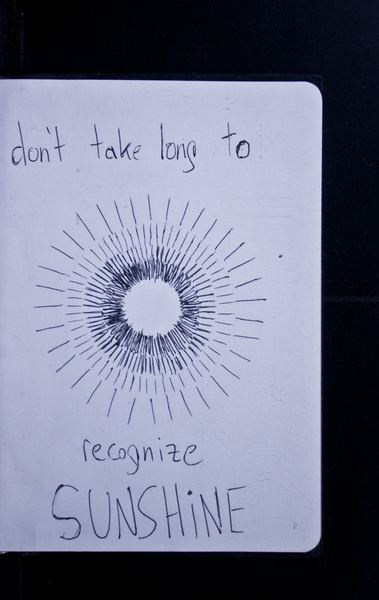 don't take long to
recognize
SUNSHiNE